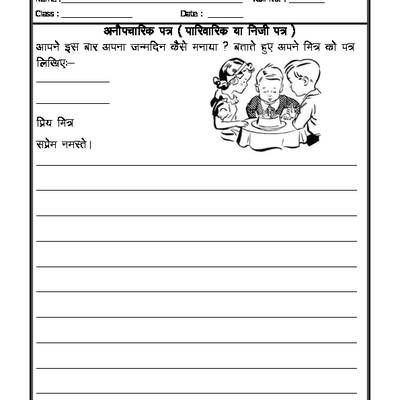 Class : Date :
अनौपचारिक पत्र ( पारिवारिक या निजी पत्र )
आपने इस बार अपना जन्मदिन कैसे मनाया ? बताते हुए अपने मित्र को पत्र
लिखिए:-
प्रिय मित्र
सप्रेम नमस्ते।